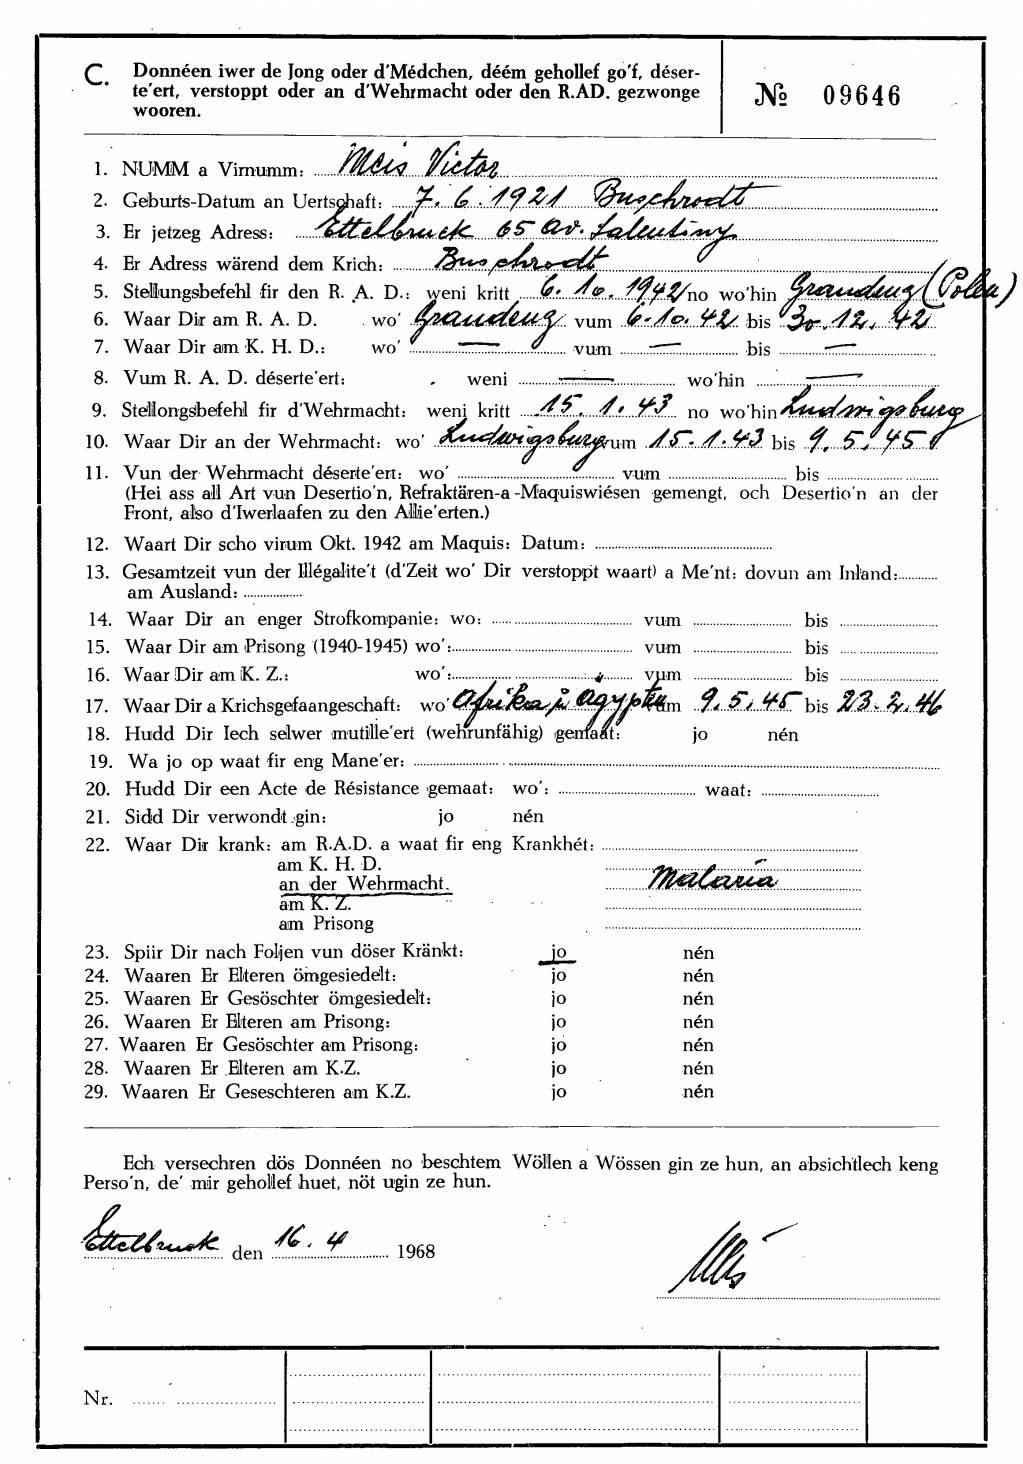 C. Donnéen iwer de Jong oder d'Médchen, déém gehollef go'f, déser-
te'ert, verstoppt oder an d'Wehrmacht oder den R.AD. gezwonge
wooren.
№ 09646
1. NUMM a Virnumm: Meis Victor
2. Geburts-Datum an Uertschaft: 7.6.1921 Buschrodt
3. Er jetzeg Adress: Ettelbruck 65 Av. Salentiny
4. Er Adress wärend dem Krich: Buschrodt
5. Stellungsbefehl fir den R. A. D.: weni kritt 6.10.1942 no wo'hin Graudenz (Polen)
6. Waar Dir am R. A. D. wo' Graudenz vum 6.10.42 bis 30.12.42
7. Waar Dir am K. H. D.: wo' — vum — bis —
8. Vum R. A. D. déserte'ert: weni — wo'hin —
9. Stellongsbefehl fir d'Wehrmacht: weni kritt 15.1.43 no wo'hin Ludwigsburg
10. Waar Dir an der Wehrmacht: wo' Ludwigsburg vum 15.1.43 bis 9.5.45
11. Vun der Wehrmacht déserte'ert: wo' vum bis
(Hei ass all Art vun Desertio'n, Refraktären-a -Maquiswiésen gemengt, och Desertio'n an der
Front, also d'Iwerlaafen zu den Allie'erten.)
12. Waart Dir scho virum Okt. 1942 am Maquis: Datum:
13. Gesamtzeit vun der Illégalite't (d'Zeit wo' Dir verstoppt waart) a Me'nt: dovun am Inland:
am Ausland:
14. Waar Dir an enger Strofkompanie: wo: vum bis
15. Waar Dir am Prisong (1940-1945) wo': vum bis
16. Waar Dir am K. Z.: wo': vum bis
17. Waar Dir a Krichsgefaangeschaft: wo' Afrika, Ägypten vum 9.5.45 bis 23.2.46
18. Hudd Dir Iech selwer mutille'ert (wehrunfähig) gemaat: jo nén
19. Wa jo op waat fir eng Mane'er:
20. Hudd Dir een Acte de Résistance gemaat: wo': waat:
21. Sidd Dir verwondt gin: jo nén
22. Waar Dir krank: am R.A.D. a waat fir eng Krankhét:
am K. H. D.
an der Wehrmacht. Malaria
am K. Z.
am Prisong
23. Spiir Dir nach Foljen vun döser Kränkt: jo nén
24. Waaren Er Elteren ömgesiedelt: jo nén
25. Waaren Er Gesöschter ömgesiedelt: jo nén
26. Waaren Er Elteren am Prisong: jo nén
27. Waaren Er Gesöschter am Prisong: jo nén
28. Waaren Er Elteren am K.Z. jo nén
29. Waaren Er Geseschteren am K.Z. jo nén
Ech versechren dös Donnéen no beschtem Wöllen a Wössen gin ze hun, an absichtlech keng
Perso'n, de' mir gehollef huet, nöt ugin ze hun.
Ettelbruck den 16.4 1968
Meis
Nr.